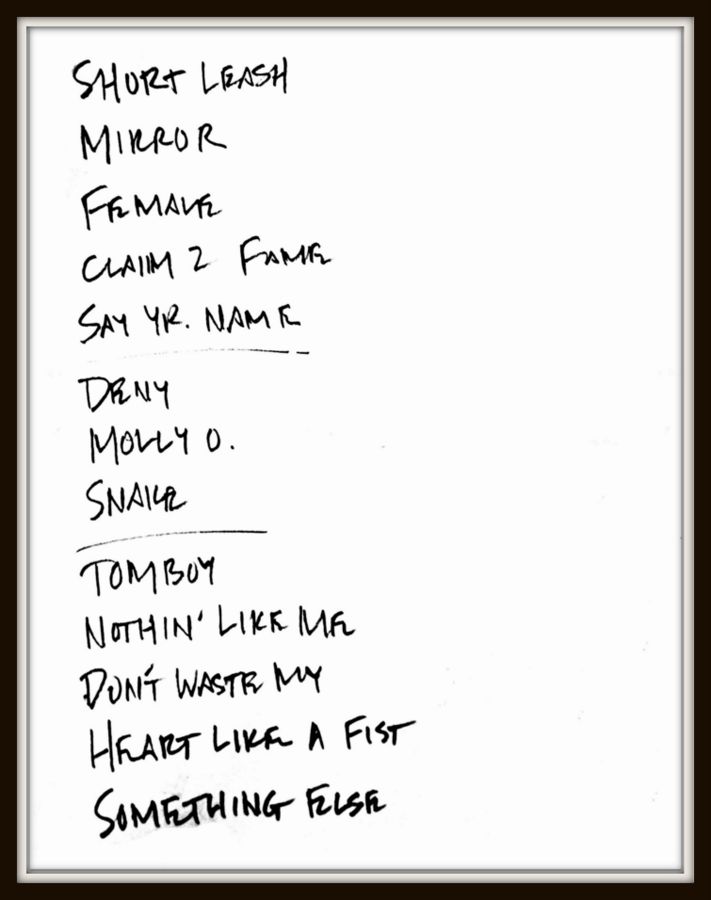 SHORT LEASH
MIRROR
FEMALE
CLAIM 2 FAME
SAY YR. NAME
DENY
MOLLY O.
SNAKE
TOMBOY
NOTHIN' LIKE ME
DON'T WASTE MY
HEART LIKE A FIST
SOMETHING ELSE